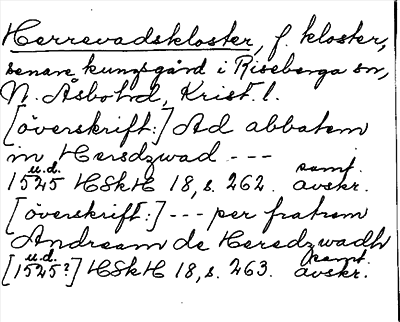 Herrevadskloster, f. kloster,
senare kungsgård i Riseberga sn,
N. Åsbo hd, Krist. l.
[överskrift:] Ad abbatem
in Hersdzwad ---
u.d. samt.
1525 HSkH 18, s. 262. avskr.
[överskrift:] --- per fratrem
Andream de Heredzwadh
u.d. samt.
[1525?] HSkH 18, s. 263. avskr.